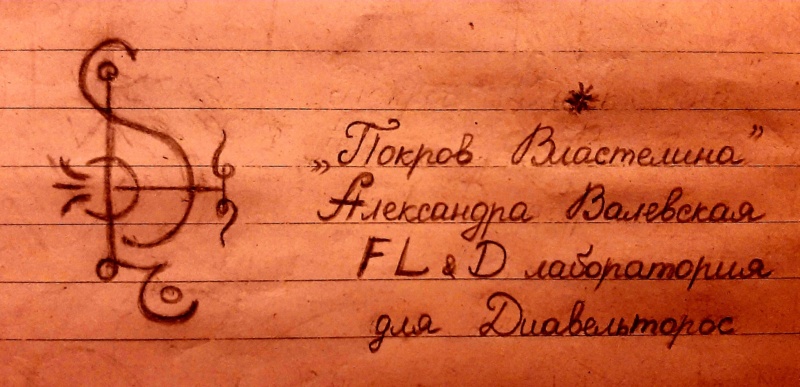 „Покров Властелина”
Александра Валевская
FL & D лаборатория
для Диавельторос